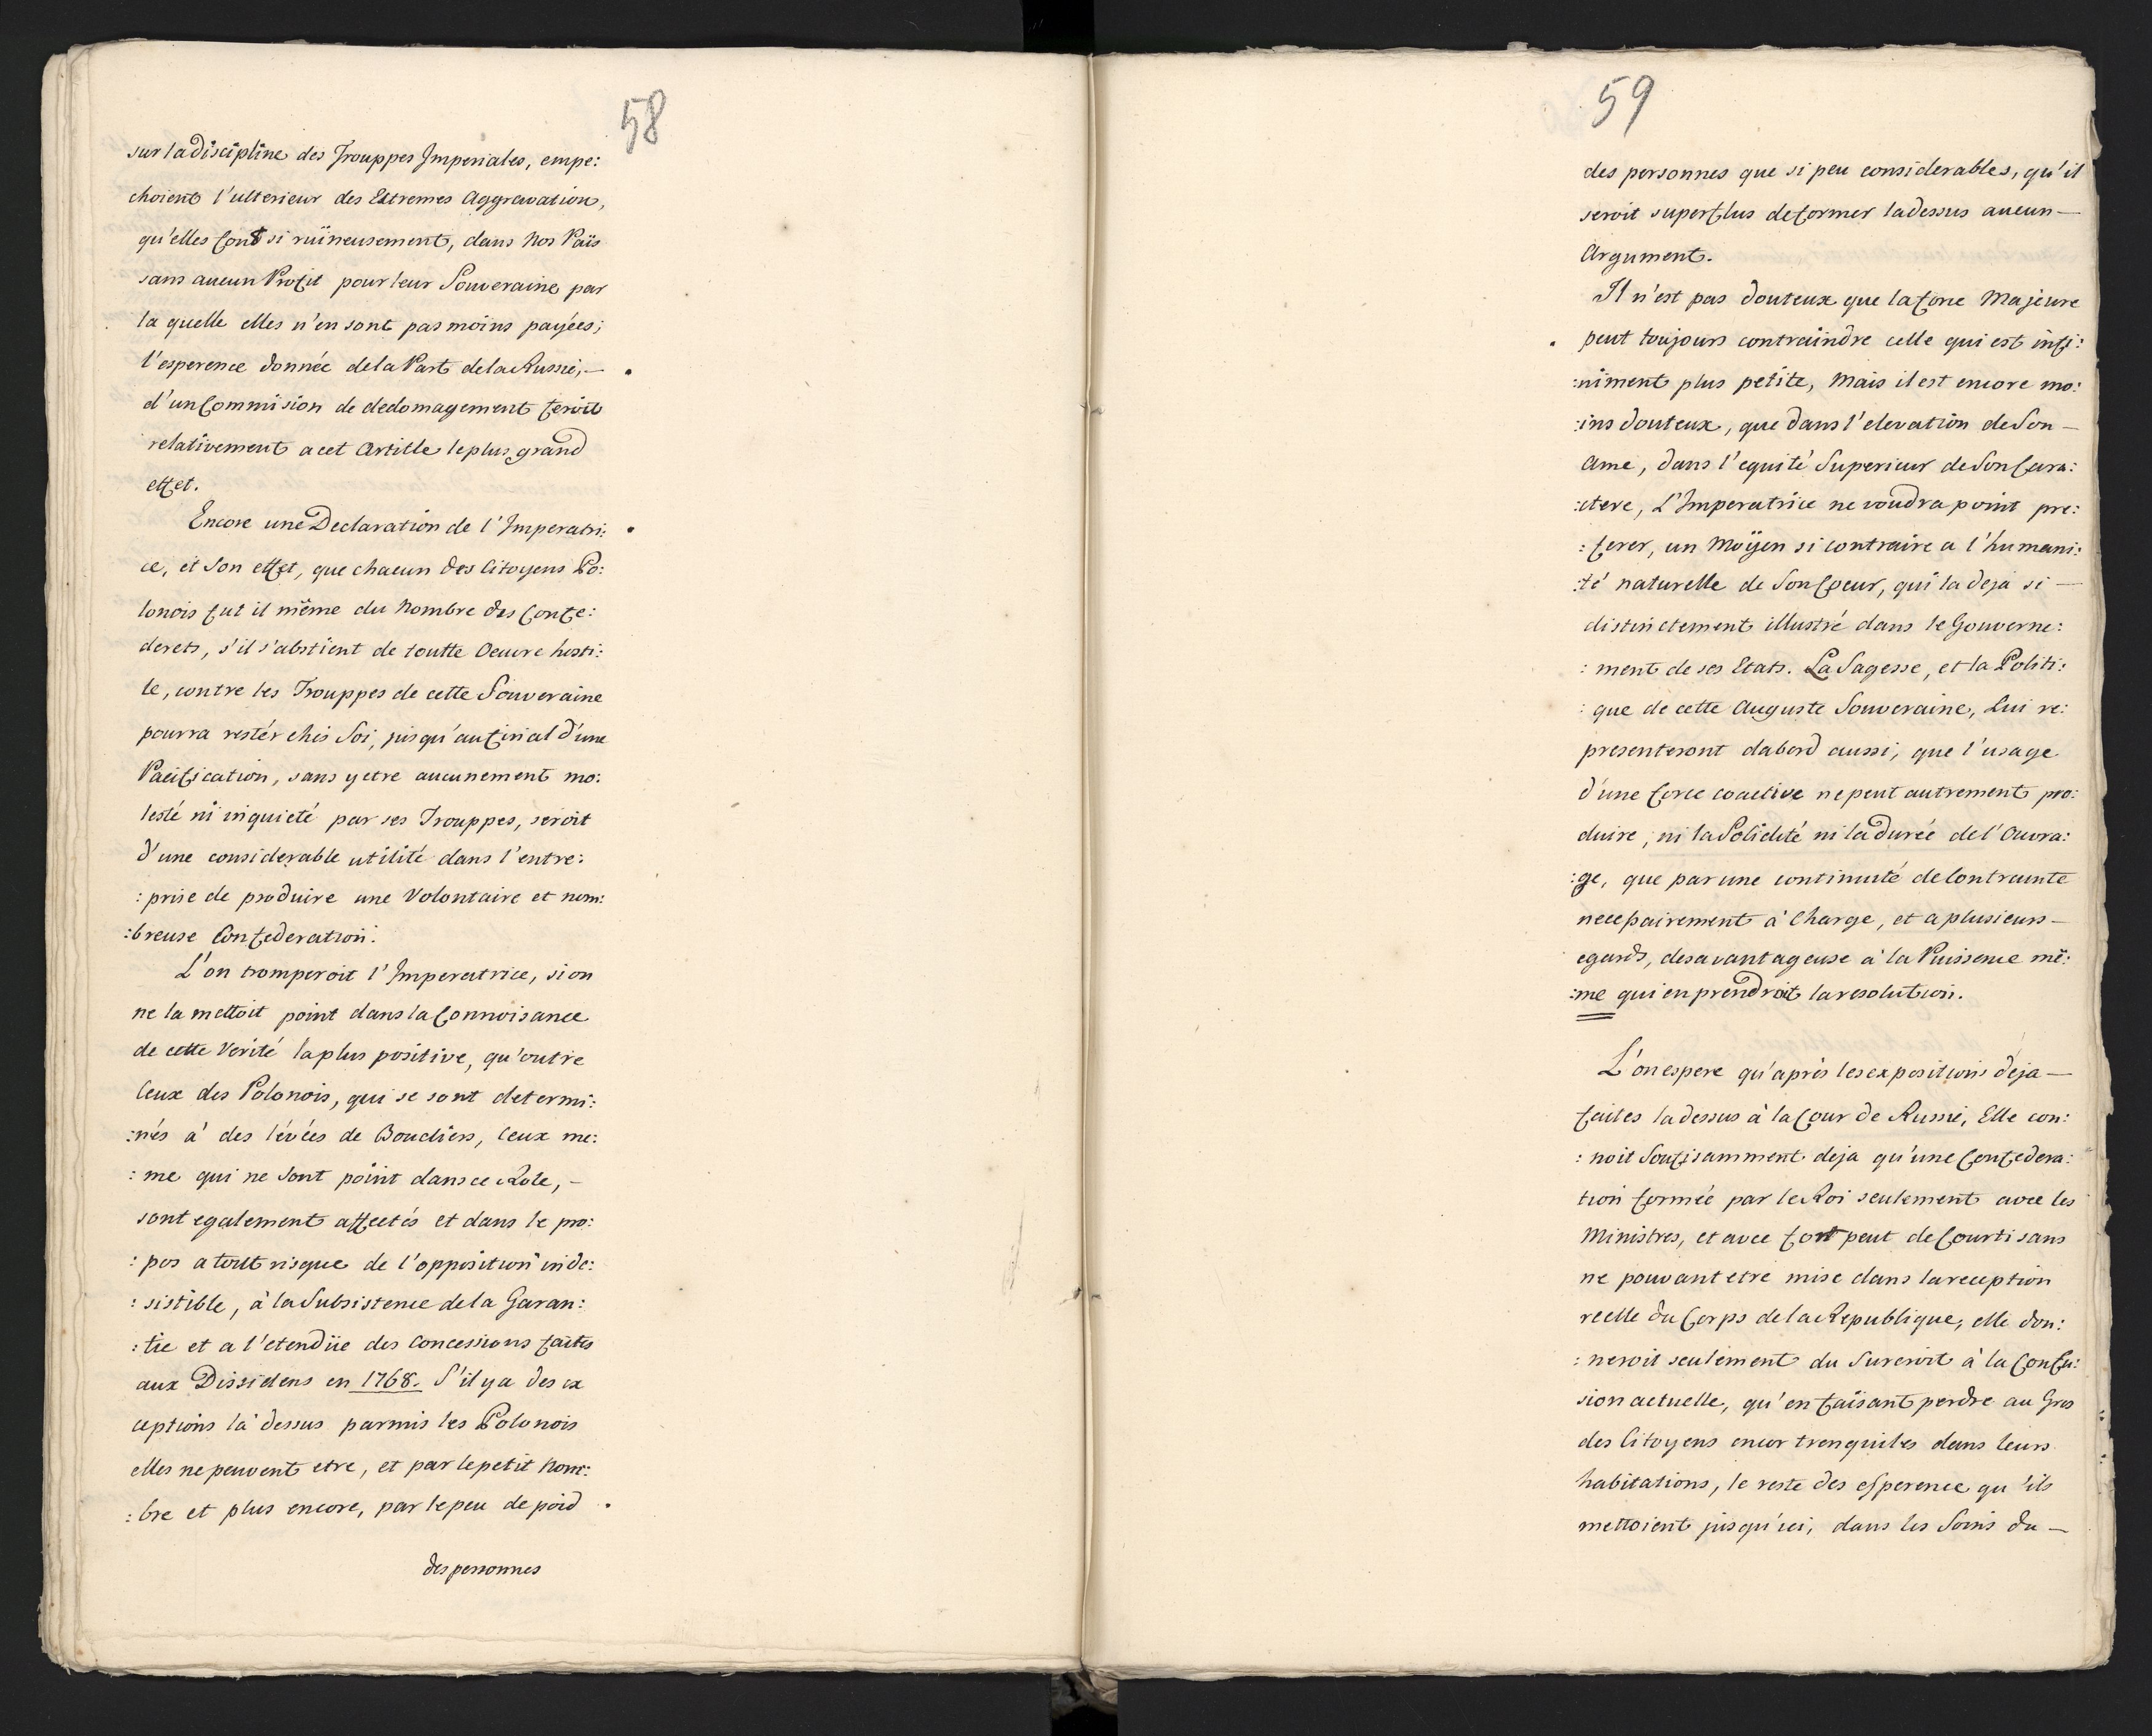 58
sur la discipline des Trouppes Imperiales, empe:
choient l'ulterieur des Extremes Aggravation,
qu'elles font si ruineusement, dans Nos Païs
sans aucun Profit pour leur Souveraine par
la quelle elles n'en sont pas moins payées;
l'esperence donnée de la Part de la Russie,—
d'un Commision de dedomagement feroit
relativement a cet Artille le plus grand
effet.
Encore une Declaration de l'Imperatri:
ce, et Son effet, que chacun des Citoyens Po:
lonois fut il même du Nombre des Confe:
derets, s'il s'abstient de toutte Oeuvre hosti:
le, contre les Trouppes de cette Souveraine
pourra restér chés Soi, jusqu'au final d'une
Pacification, sans y etre aucunement mo:
lesté ni inquieté par ses Trouppes, seroit
d'une considerable utilité dans l'entre:
:prise de produire une Volontaire et nom:
:breuse Confederation.
L'on tromperoit l'Imperatrice, si on
ne la mettoit point dans la Connoisance
de cette Verité la plus positive, qu'outre
Ceux des Polonois, qui se sont determi:
:nés a' des lévées de Boucliers, Ceux me:
:me qui ne Sont point dans ce Role,—
sont egalement affectés et dans le pro:
:pos a tout risque de l'opposition inde:
:sistible, à la Subsistence de la Garan:
:tie et a l'etendüe des Concessions faites
aux Dissidens en 1768. S'il y a des ex
ceptions la' dessus parmis les Polonois
elles ne peuvent etre, et par le petit Nom:
:bre et plus encore, par le peu de poid
des personnes
59
des personnes que si peu considerables, qu'il
seroit superflus de former ladessus aucun—
Argument.
Il n'est pas douteux que la force Majeure
peut toujours contraindre celle qui est infi:
:niment plus petite, Mais il est encore mo:
:ins douteux, que dans l'elevation de Son—
Ame, dans l'equité Superieur de Son Cara:
:ctere, L'Imperatrice ne voudra point pre:
:ferer, un Moÿen si contraire a l'humani:
:té naturelle de Son Coeur, qui la deja si—
distinctement illustré dans le Gouverne:
:ment de ses Etats. La Sagesse, et la Politi:
:que de cette Auguste Souveraine, Lui re:
presenteront dabord aussi, que l'usage
d'une force coactive ne peut autrement pro:
duire, ni la Solidité ni la Durée de l'Ouvra:
:ge, que par une continuité de Contrainte
necessairement à Charge, et a plusieurs—
egards, desavantageuse a' la Puissence mê:
:me qui en prendroit la resolution.
L'on espere qu'aprés les expositions déja—
faites ladessus à la Cour de Russie, Elle con:
:noit Souffisamment deja qu'une Confedera:
tion formée par le Roi seulement avec les
Ministres, et avec fort peut de Courtisans
ne pouvant etre mise dans la reception
reelle du Corps de la Republique, elle don:
:neroit seulement du Surcroit à la Confu:
sion actuelle, qu'en faisant perdre au Gros
des Citoyens encor trenquiles dans leurs
habitations, le reste des esperence qu'ils
mettoient jusqu'ici, dans les Soins du—